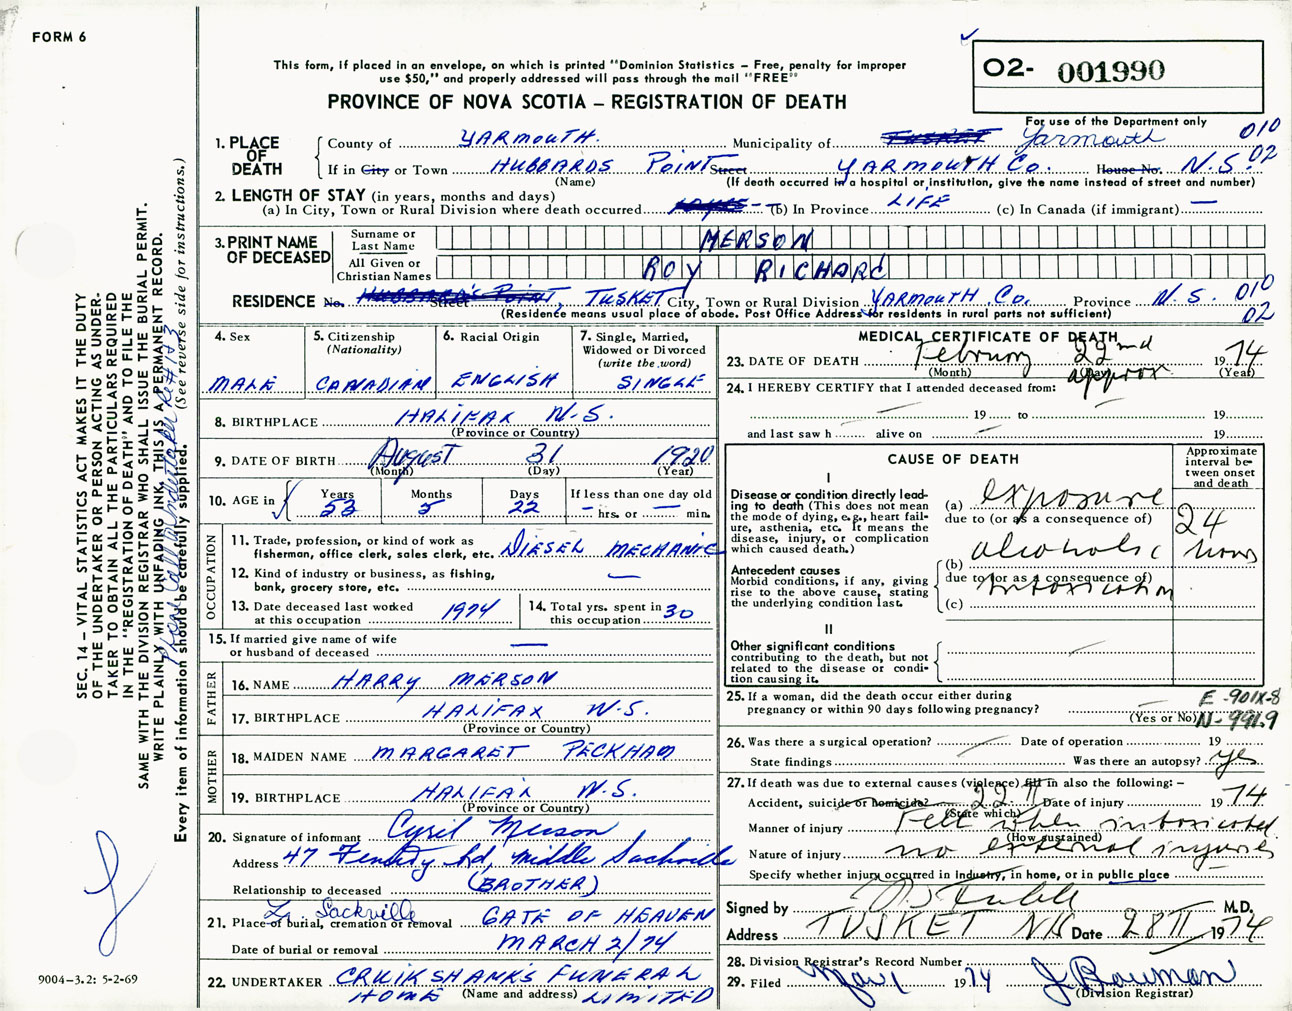 FORM 6
This form, if placed in an envelope, on which is printed "Dominion Statistics – Free, penalty for improper
use $50," and properly addressed will pass through the mail "FREE"
PROVINCE OF NOVA SCOTIA – REGISTRATION OF DEATH
O2- 001990
For use of the Department only
1. PLACE OF DEATH
County of YARMOUTH. Municipality of TUSKET Yarmouth 010
If in City or Town HUBBARDS POINT Street YARMOUTH Co. House No. N.S. 02
(Name) (If death occurred in a hospital or institution, give the name instead of street and number)
2. LENGTH OF STAY (in years, months and days)
(a) In City, Town or Rural Division where death occurred (b) In Province LIFE (c) In Canada (if immigrant) —
3. PRINT NAME OF DECEASED
Surname or Last Name MERSON
All Given or Christian Names ROY RICHARD
RESIDENCE No. HUBBARD'S POINT, Street TUSKET City, Town or Rural Division YARMOUTH Co. Province N.S. 010
02
(Residence means usual place of abode. Post Office Address for residents in rural parts not sufficient)
4. Sex
MALE
5. Citizenship
(Nationality)
CANADIAN
6. Racial Origin
ENGLISH
7. Single, Married,
Widowed or Divorced
(write the word)
SINGLE
8. BIRTHPLACE HALIFAX N.S.
(Province or Country)
9. DATE OF BIRTH August 31 1920
(Month) (Day) (Year)
10. AGE in
Years Months Days If less than one day old
53 5 22 – hrs. or – min.
OCCUPATION
11. Trade, profession, or kind of work as
fisherman, office clerk, sales clerk, etc. DIESEL MECHANIC
12. Kind of industry or business, as fishing,
bank, grocery store, etc. —
13. Date deceased last worked
at this occupation 1974
14. Total yrs. spent in
this occupation 30
15. If married give name of wife
or husband of deceased —
FATHER
16. NAME HARRY MERSON
17. BIRTHPLACE HALIFAX N.S.
(Province or Country)
MOTHER
18. MAIDEN NAME MARGARET PECKHAM
19. BIRTHPLACE HALIFAX N.S.
(Province or Country)
20. Signature of informant Cyril Merson
Address 47 Rd, Middle Sackville
Relationship to deceased (BROTHER)
Lr Sackville
21. Place of burial, cremation or removal GATE OF HEAVEN
Date of burial or removal MARCH 2/74
22. UNDERTAKER CRUIKSHANKS FUNERAL
HOME (Name and address) LIMITED
MEDICAL CERTIFICATE OF DEATH
23. DATE OF DEATH February 22nd 1974
(Month) (Day) (Year)
approx
24. I HEREBY CERTIFY that I attended deceased from:
19 to 19
and last saw h alive on 19
CAUSE OF DEATH
Approximate
interval be-
tween onset
and death
I
Disease or condition directly lead-
ing to death (This does not mean
the mode of dying, e.g., heart fail-
ure, asthenia, etc. It means the
disease, injury, or complication
which caused death.)
(a) exposure
due to (or as a consequence of)
24 hours
Antecedent causes
Morbid conditions, if any, giving
rise to the above cause, stating
the underlying condition last.
(b) alcoholic
due to (or as a consequence of)
intoxication
(c)
II
Other significant conditions
contributing to the death, but not
related to the disease or condi-
tion causing it.
25. If a woman, did the death occur either during
pregnancy or within 90 days following pregnancy?
(Yes or No)
E-901X-8
N-991.9
26. Was there a surgical operation? Date of operation 19
State findings Was there an autopsy? yes
27. If death was due to external causes (violence) fill in also the following: –
Accident, suicide or homicide? 22 II Date of injury 1974
(State which)
Manner of injury Fell when intoxicated
(How sustained)
Nature of injury no external injuries
Specify whether injury occurred in industry, in home, or in public place
Signed by M.D.
Address TUSKET NS Date 28 II 1974
28. Division Registrar's Record Number
29. Filed May 1 1974 J. Bowman
(Division Registrar)
SEC. 14 – VITAL STATISTICS ACT MAKES IT THE DUTY
OF THE UNDERTAKER OR PERSON ACTING AS UNDER-
TAKER TO OBTAIN ALL THE PARTICULARS REQUIRED
IN THE "REGISTRATION OF DEATH" AND TO FILE THE
SAME WITH THE DIVISION REGISTRAR WHO SHALL ISSUE THE BURIAL PERMIT.
WRITE PLAINLY WITH UNFADING INK, THIS IS A PERMANENT RECORD.
Every item of information should be carefully supplied. (See reverse side for instructions.)
9004–3.2: 5-2-69